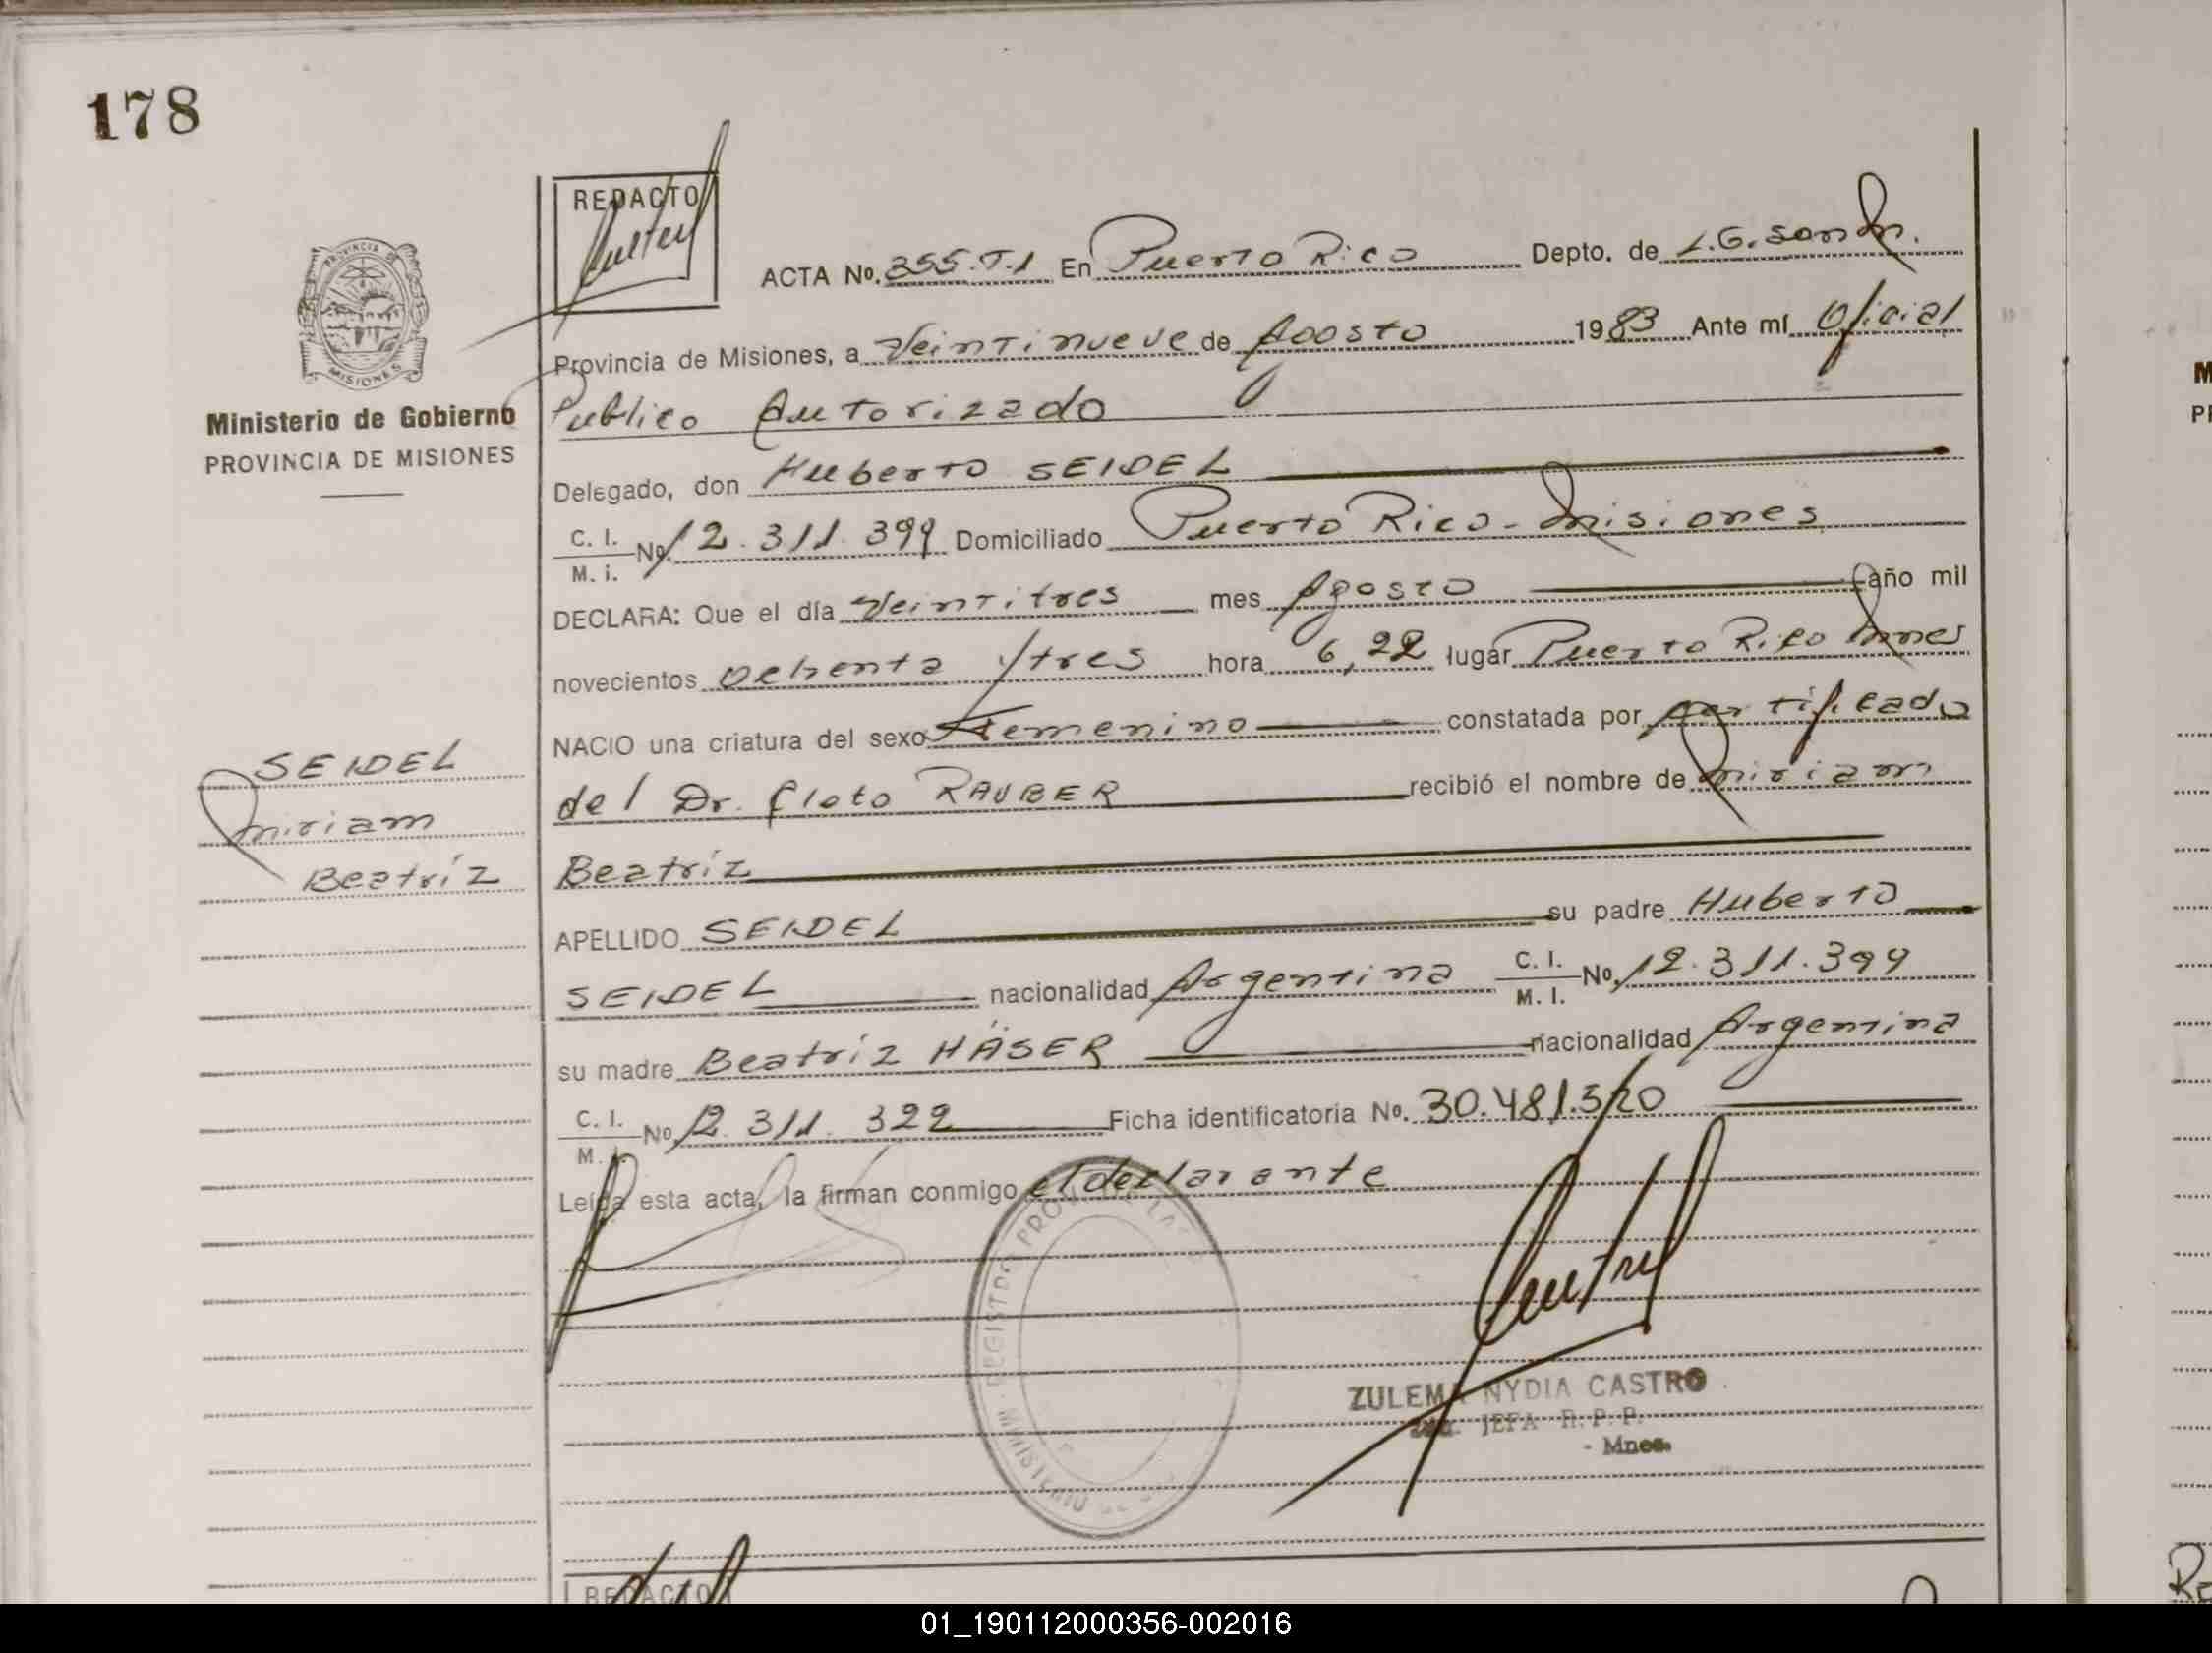 178
REDACTO
ACTA No. 355.T.1 En Puerto Rico Depto. de L.G. San M.
Provincia de Misiones, a Veintinueve de Agosto 1983 Ante mí Oficial
Publico Autorizado
PROVINCIA DE
MISIONES
Ministerio de Gobierno
PROVINCIA DE MISIONES
Delegado, don Huberto SEIDEL
C. I.
M. i. No. 12.311.399 Domiciliado Puerto Rico - Misiones
DECLARA: Que el día Veintitres mes Agosto año mil
novecientos ochenta y tres hora 6,22 lugar Puerto Rico Mnes
NACIO una criatura del sexo Femenino constatada por certificado
del Dr. Cloto RAUBER recibió el nombre de Miriam
Beatríz
SEIDEL
Miriam
Beatríz
APELLIDO SEIDEL su padre Huberto
SEIDEL nacionalidad Argentina C. I.
M. I. No. 12.311.399
su madre Beatríz HÄSER nacionalidad Argentina
C. I.
M. No. 12.311.322 Ficha identificatoria No. 30.481.520
Leída esta acta, la firman conmigo el declarante
REGISTRO PROV
MINISTERIO DE
ZULEMA NYDIA CASTRO
JEFA R.P.P.
- Mnes.
REDACTO
01_190112000356-002016